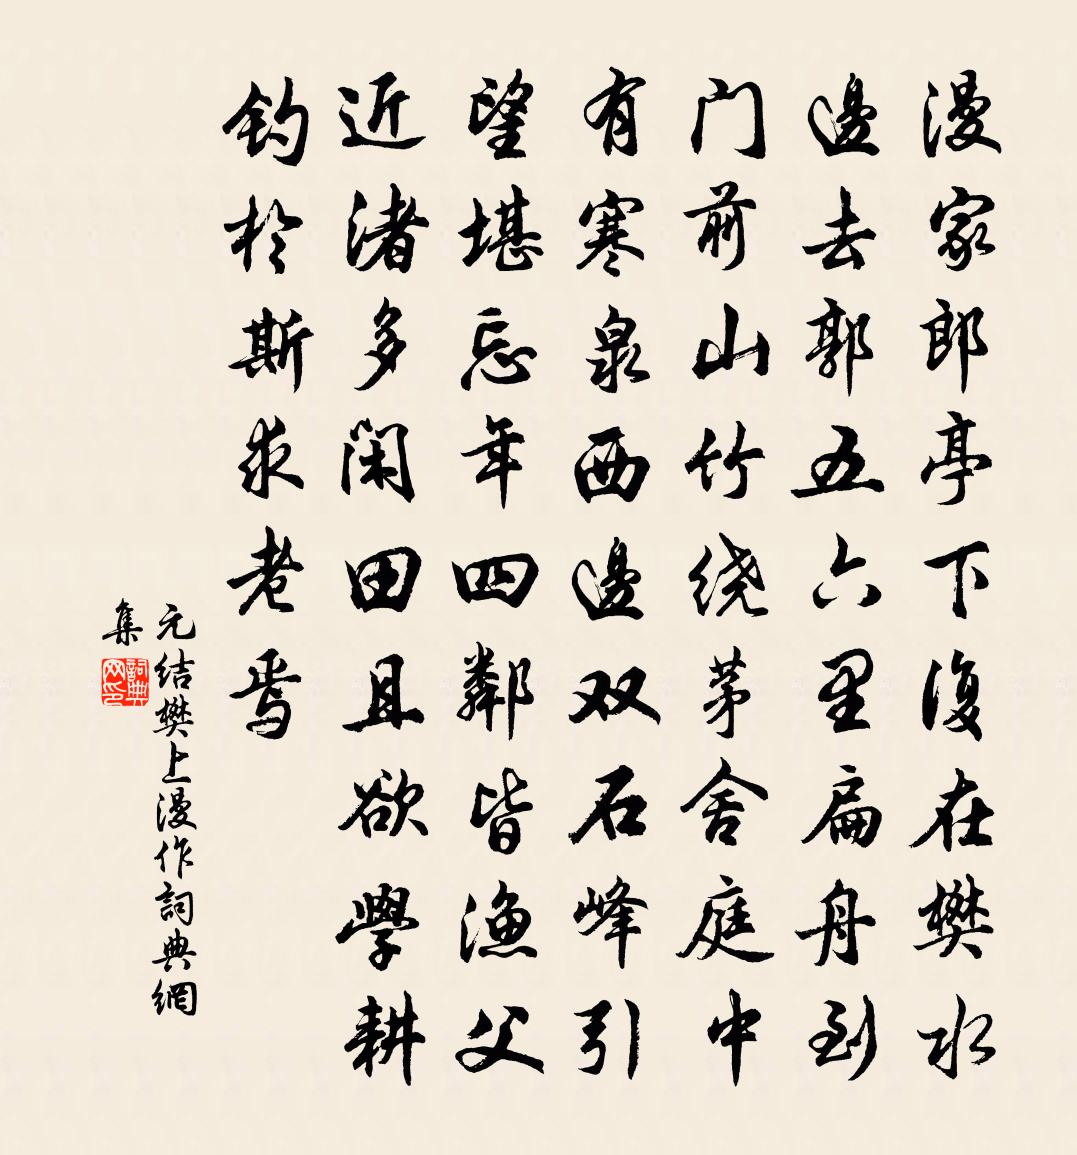 漫家郎亭下復在樊水
邊去郭五六里扁舟到
门前山竹绕茅舍庭中
有寒泉西邊双石峰引
望堪忘年四鄰皆漁父
近渚多閑田且欲學耕
钓於斯求老焉
元结樊上漫作詞典網
集
詞典网印